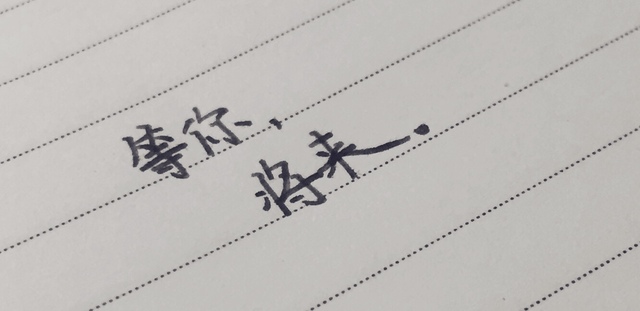 等你、
将来.